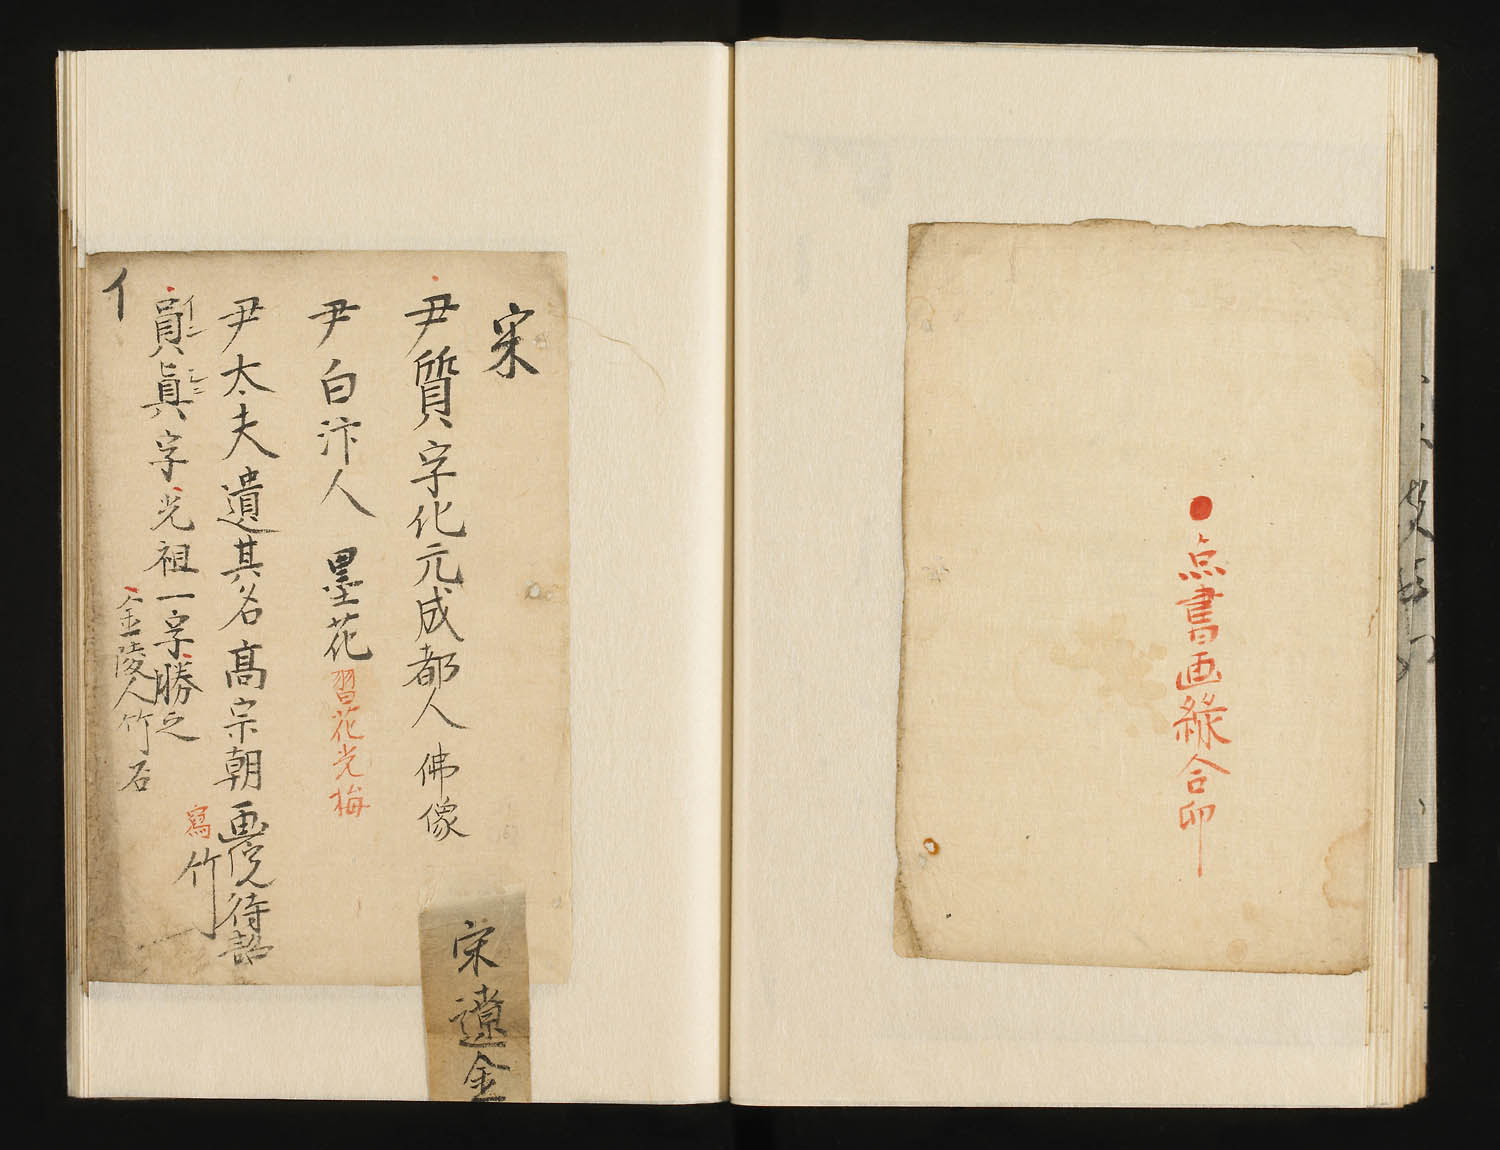 ●点書画綠合印
宋
尹質字化元成都人 佛像
尹白汴人 墨花
習花光梅
尹太夫遺其名高宗朝画院待詔
寫竹
員眞字光祖一字勝之
イン シン
金陵人竹石
イ
宋遼金